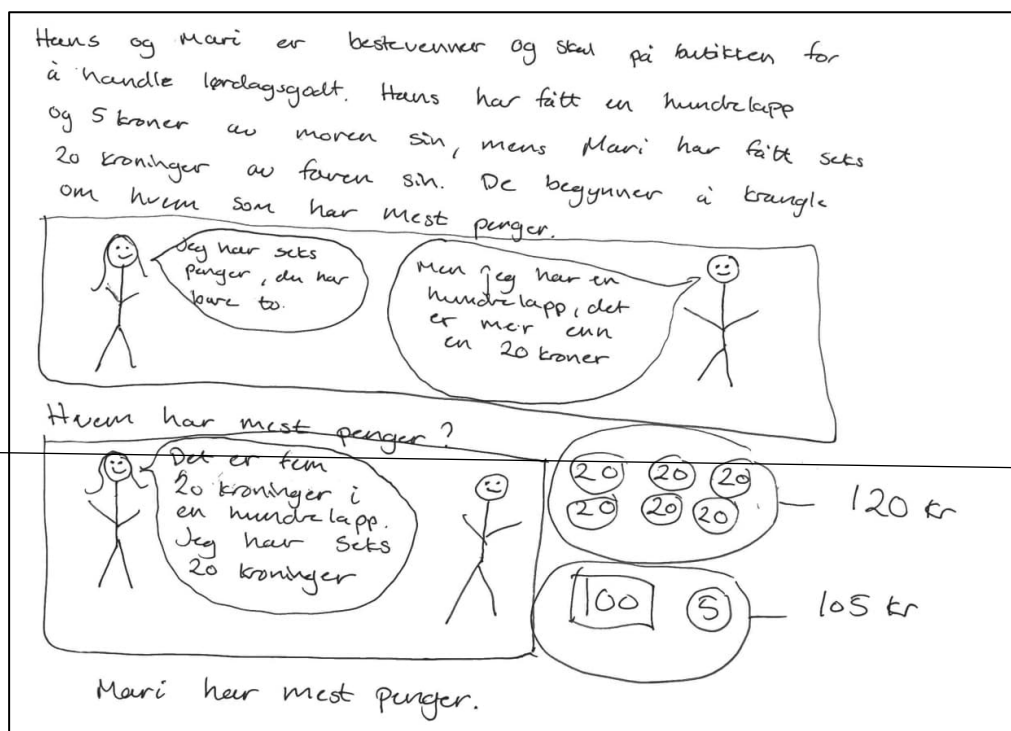 Hans og Mari er bestevenner og skal på butikken for
å handle lørdagsgodt. Hans har fått en hundrelapp
og 5 kroner av moren sin, mens Mari har fått seks
20 kroninger av faren sin. De begynner å krangle
om hvem som har mest penger.
Jeg har seks
penger, du har
bare to.
Men jeg har en
hundrelapp, det
er mer enn
en 20 kroner
Hvem har mest penger?
Det er fem
20 kroninger i
en hundrelapp.
Jeg har seks
20 kroninger
20 20 20
20 20 20
120 kr
100 5
105 kr
Mari har mest penger.